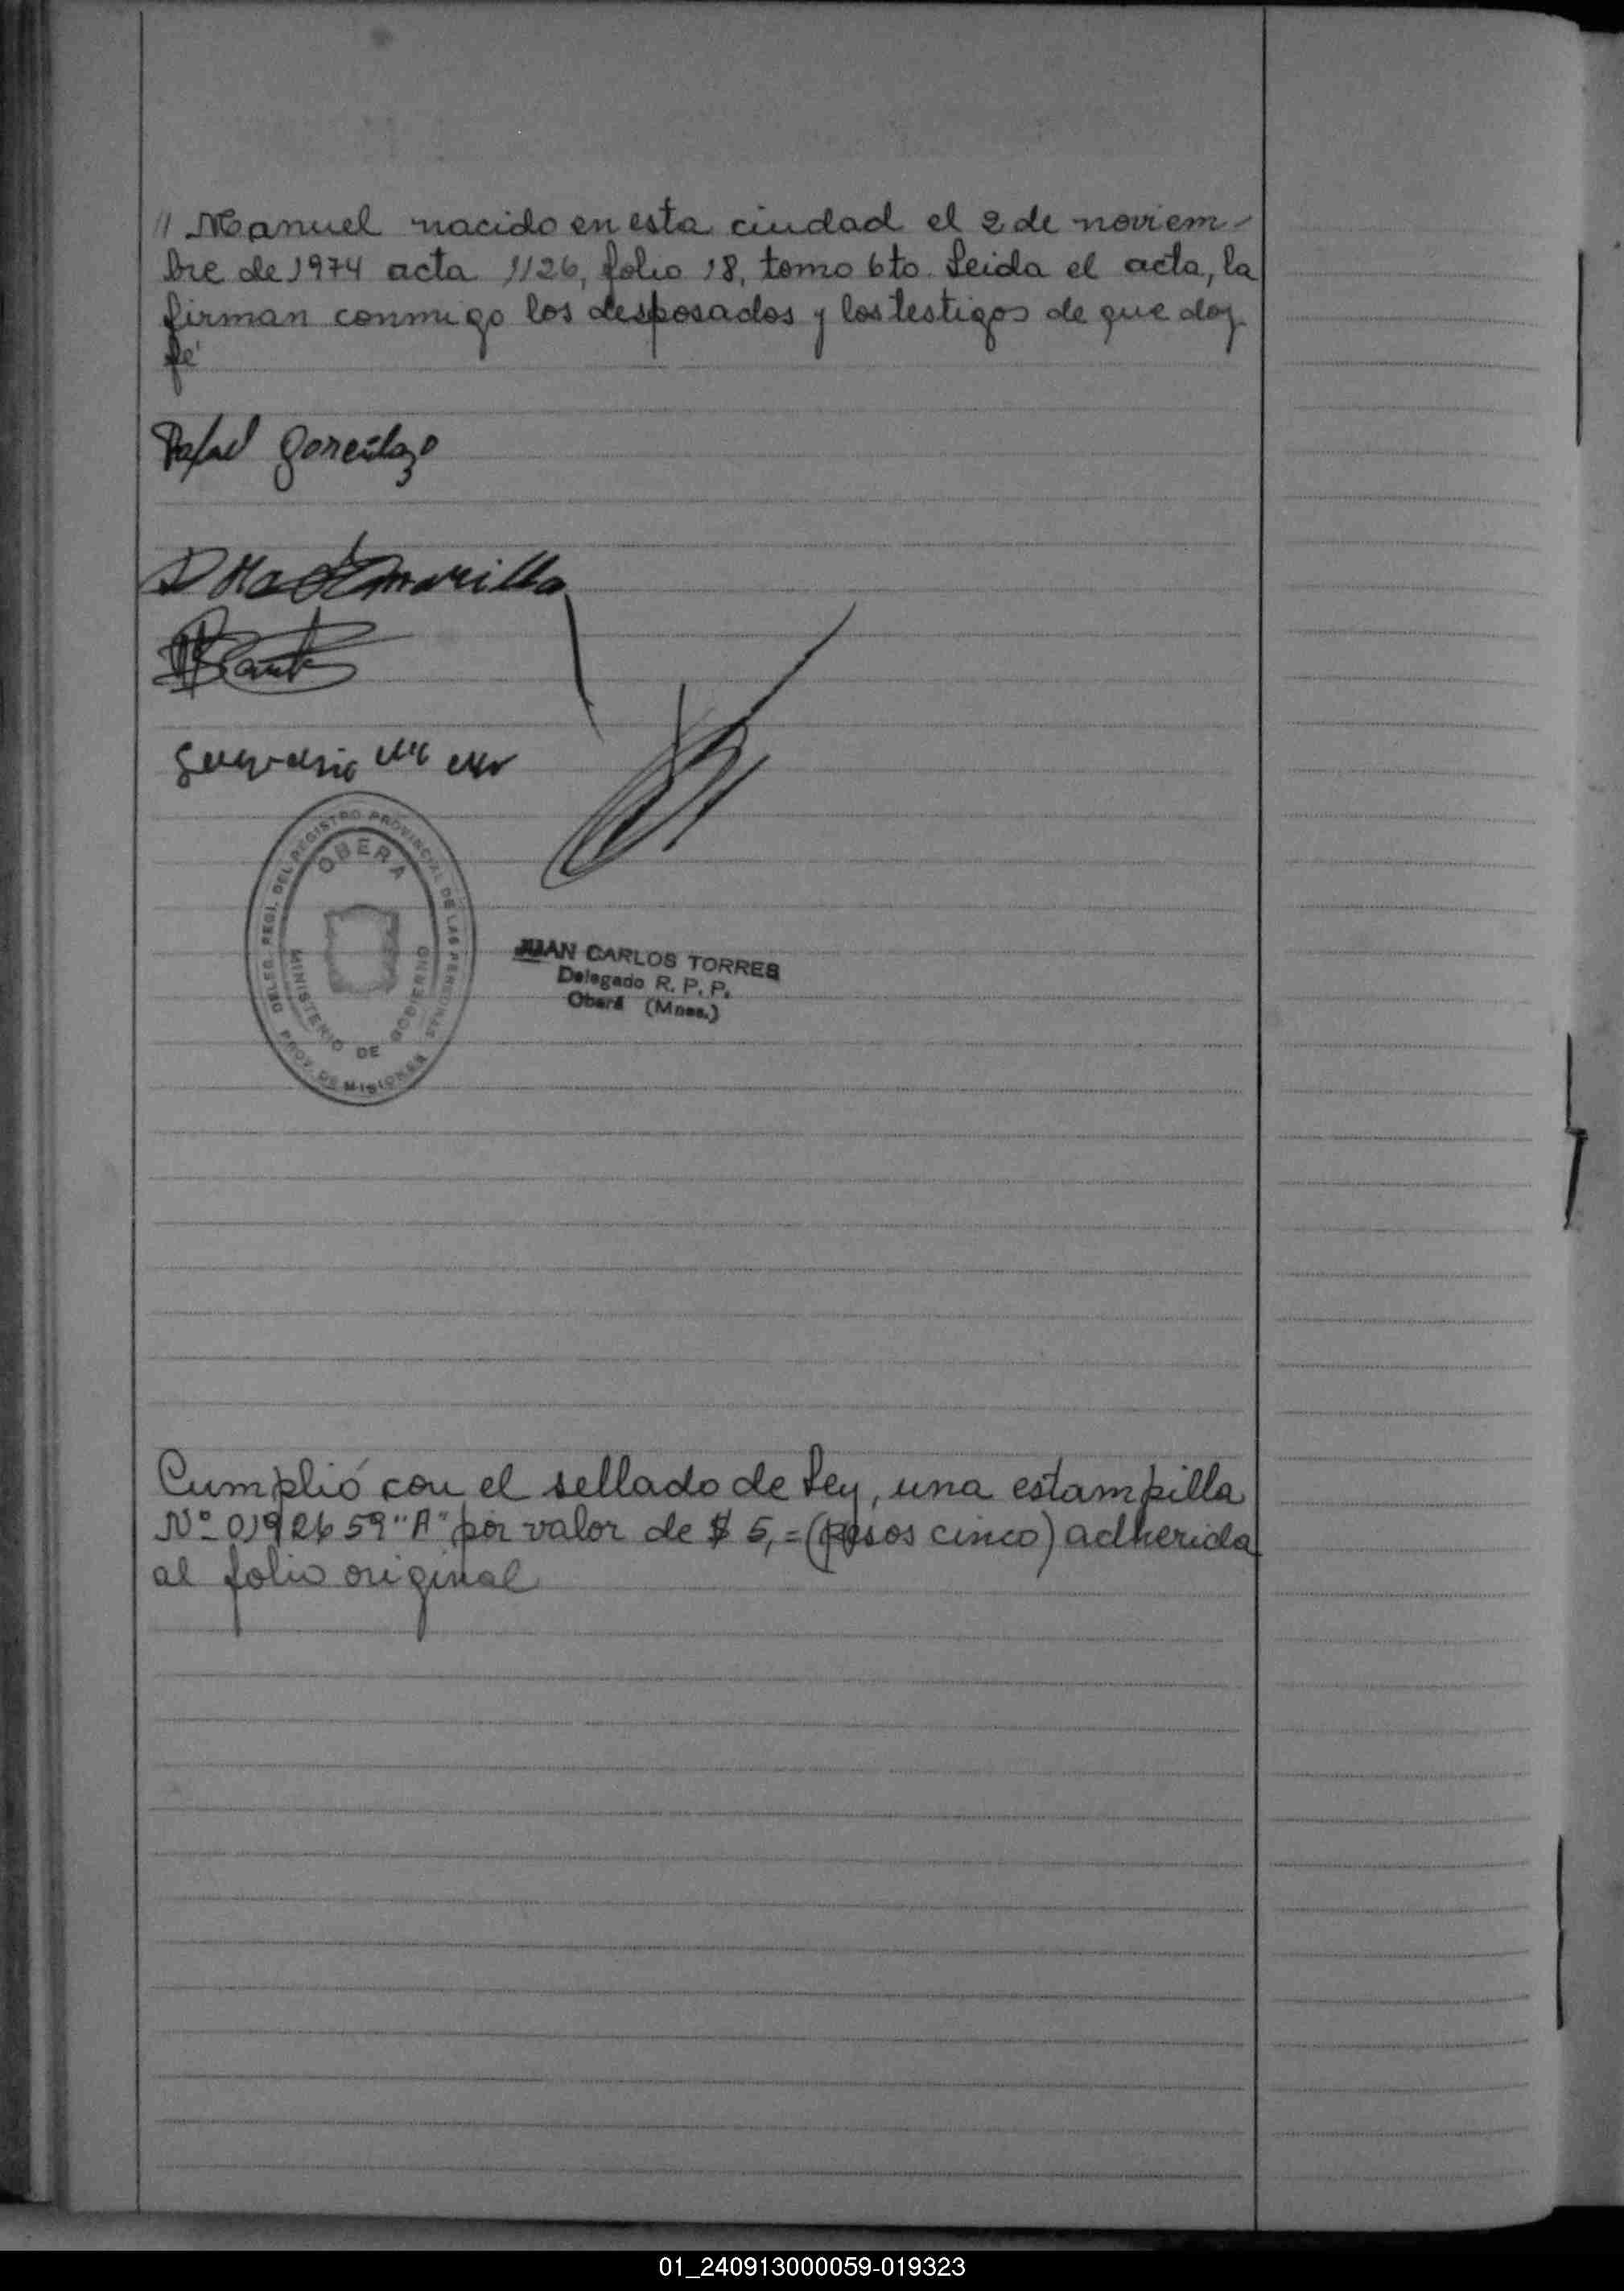 // Manuel nacido en esta ciudad el 2 de noviem-
bre de 1974 acta 1126, folio 18, tomo 6to. Leida el acta, la
firman conmigo los desposados y los testigos de que doy
fé
Rafael
Amarilla
DELEG. REGI. DEL REGISTRO PROVINCIAL DE LAS PERSONAS
OBERA
MINISTERIO DE GOBIERNO
PROV. DE MISIONES
JUAN CARLOS TORRES
Delegado R. P. P.
Oberá (Mnes.)
Cumplió con el sellado de Ley, una estampilla
Nº 0192659 "A" por valor de $ 5,= (pesos cinco) adherida
al folio original
01_240913000059-019323